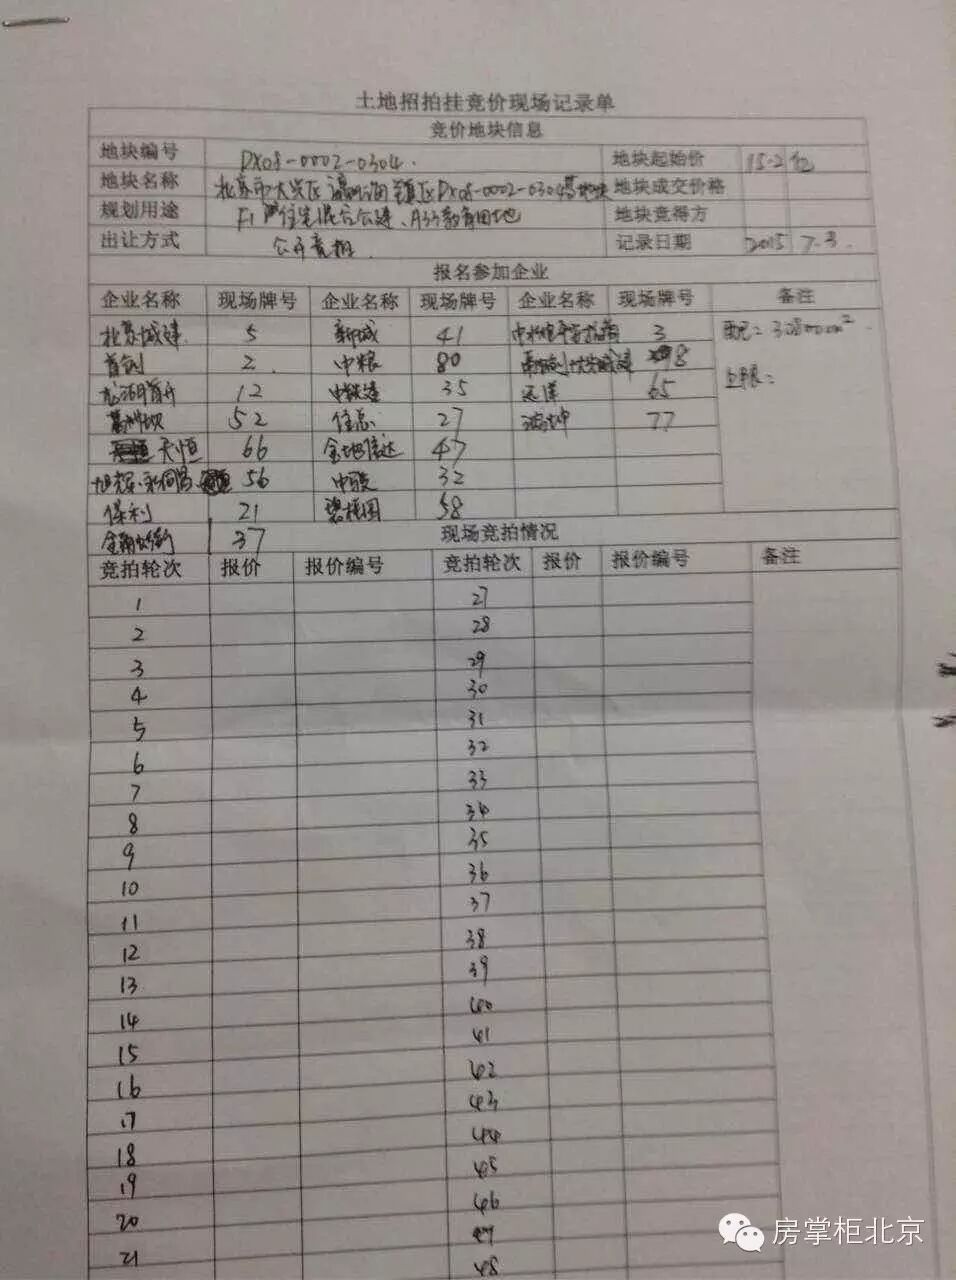 土地招拍挂竞价现场记录单
竞价地块信息
地块编号 DX08-0002-0304. 地块起始价 15.2亿
地块名称 北京市大兴区 镇区DX08-0002-0304等地块 地块成交价格
规划用途 F1 住宅混合公建、A33教育用地 地块竞得方
出让方式 公开竞拍 记录日期 2015 7.3.
报名参加企业
企业名称 现场牌号 企业名称 现场牌号 企业名称 现场牌号 备注
北京城建 5 新城 41 3
首创 2 中粮 80 8
12 中铁建 35 远洋 65 上限:
葛洲坝 52 住总 27 77
天恒 66 金地信达 47
旭辉· 56 中骏 32
保利 21 碧桂园 58
37 现场竞拍情况
竞拍轮次 报价 报价编号 竞拍轮次 报价 报价编号 备注
1 27
2 28
3 29
4 30
5 31
6 32
7 33
8 34
9 35
10 36
11 37
12 38
13 39
14 40
15 41
16 42
17 43
18 44
19 45
20 46
21 47
48
房掌柜北京